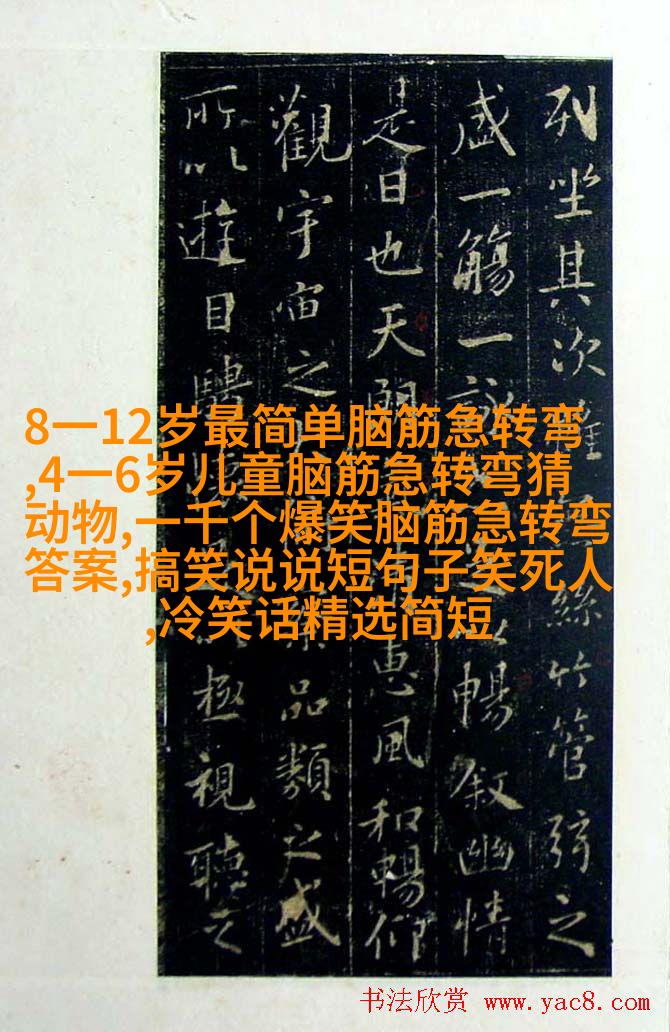 列坐其次雖絲竹管弦之
盛一觴一詠暢叙幽情
是日也天朗惠風和暢仰
觀宇宙之品類之盛
所以遊目騁極視聽之
8一12岁最简单脑筋急转弯
,4一6岁儿童脑筋急转弯猜
动物,一千个爆笑脑筋急转弯
答案,搞笑说说短句子笑死人
,冷笑话精选简短
书法欣赏 www.yac8.com